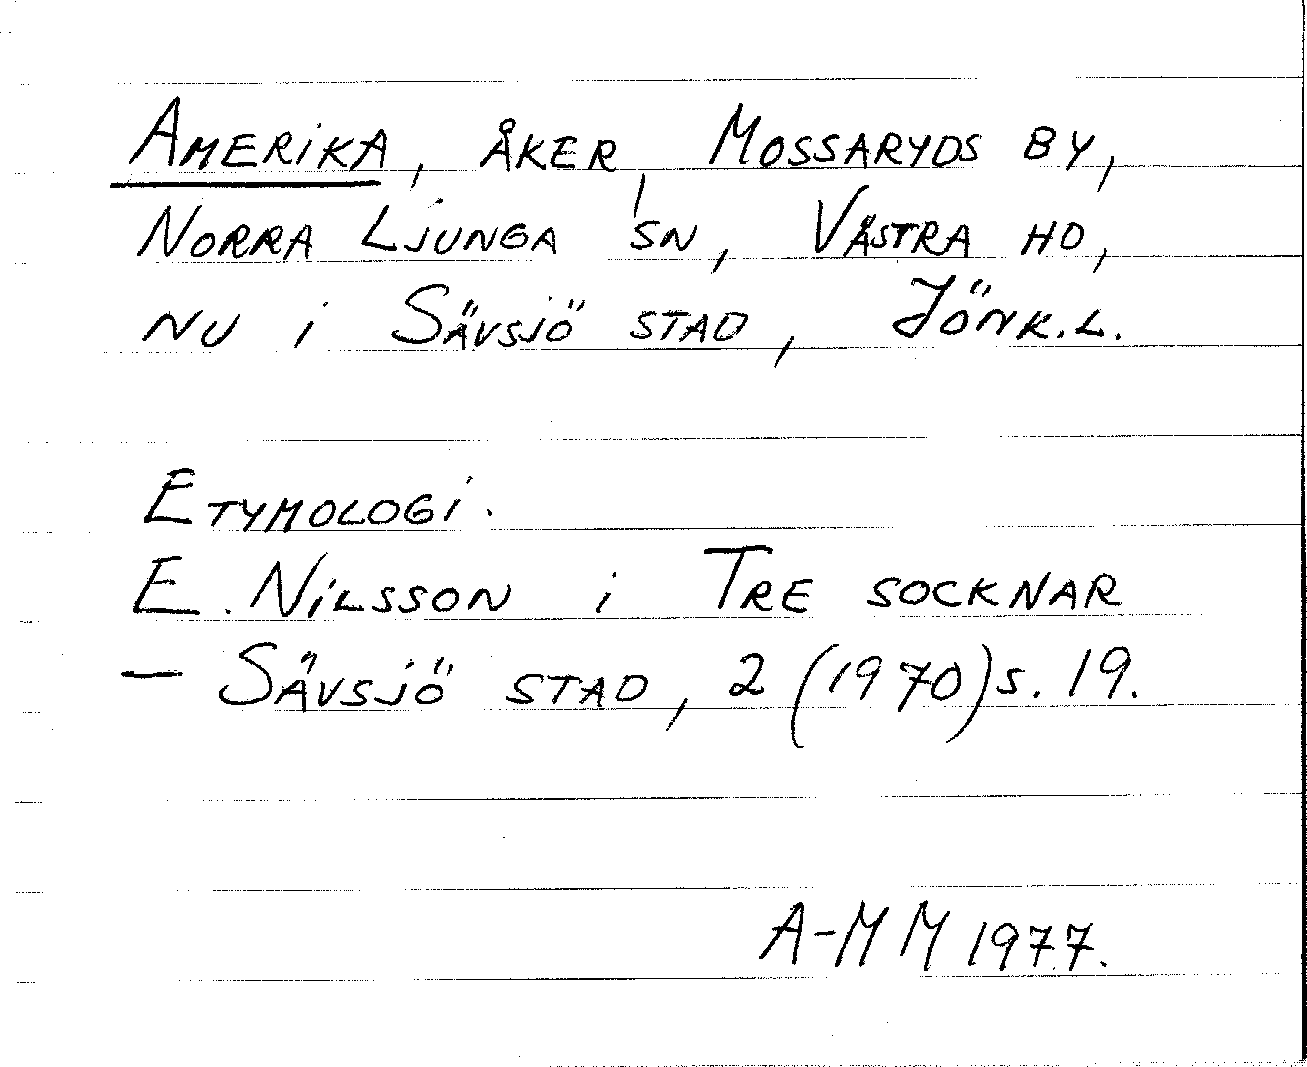 Amerika, åker, Mossaryds by,
Norra Ljunga sn, Västra hd,
nu i Sävsjö stad, Jönk.l.
Etymologi.
E. Nilsson i Tre socknar
– Sävsjö stad, 2 (1970) s. 19.
A-M M 1977.